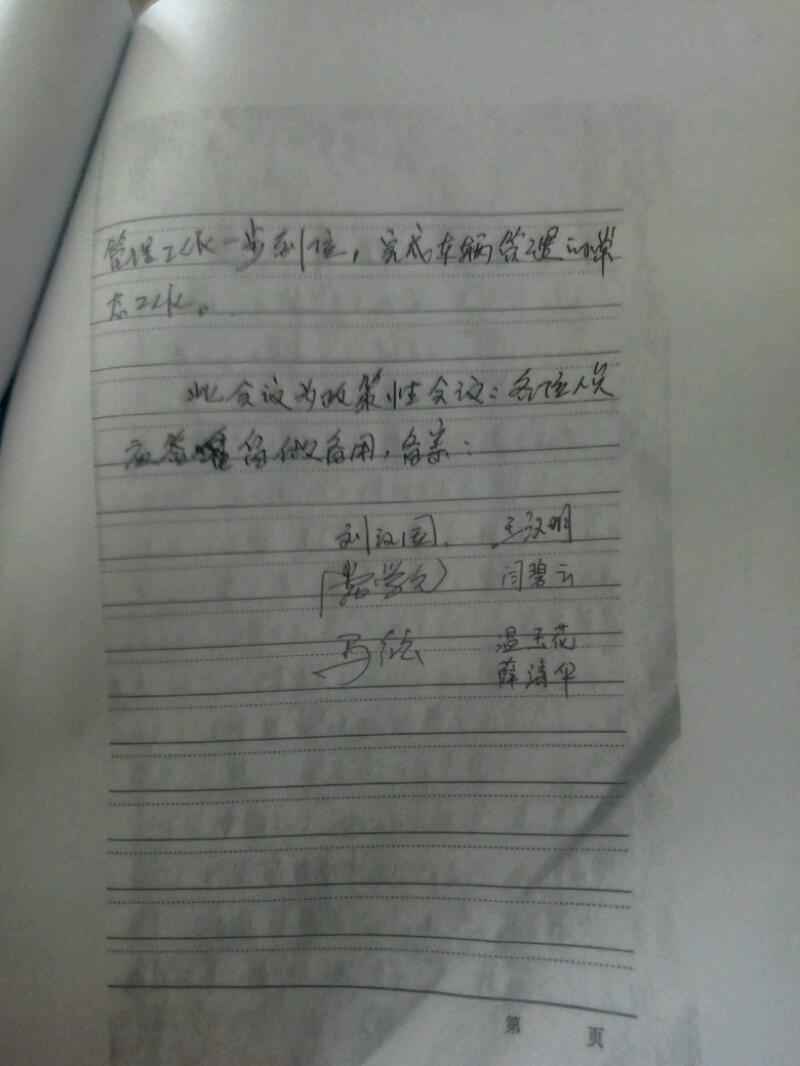 管理工作一步到位，完成车辆管理的常
态工作。
此会议为政策性会议：各位人员
应签 留做备用，备案：
刘汉国 王汉明
闫碧云
马 温玉花
薛清华
第 页